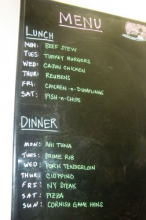 MENU
LUNCH
MON: BEEF STEW
TUES: TURKEY BURGERS
WED: CAJUN CHICKEN
THUR: REUBENS
FRI: CHICKEN-N-DUMPLINGS
SAT: FISH-N-CHIPS
DINNER
MON: AHI TUNA
TUES: PRIME RIB
WED: PORK TENDERLOIN
THUR: CIOPPINO
FRI: NY STEAK
SAT: PIZZA
SUN: CORNISH GAME HENS